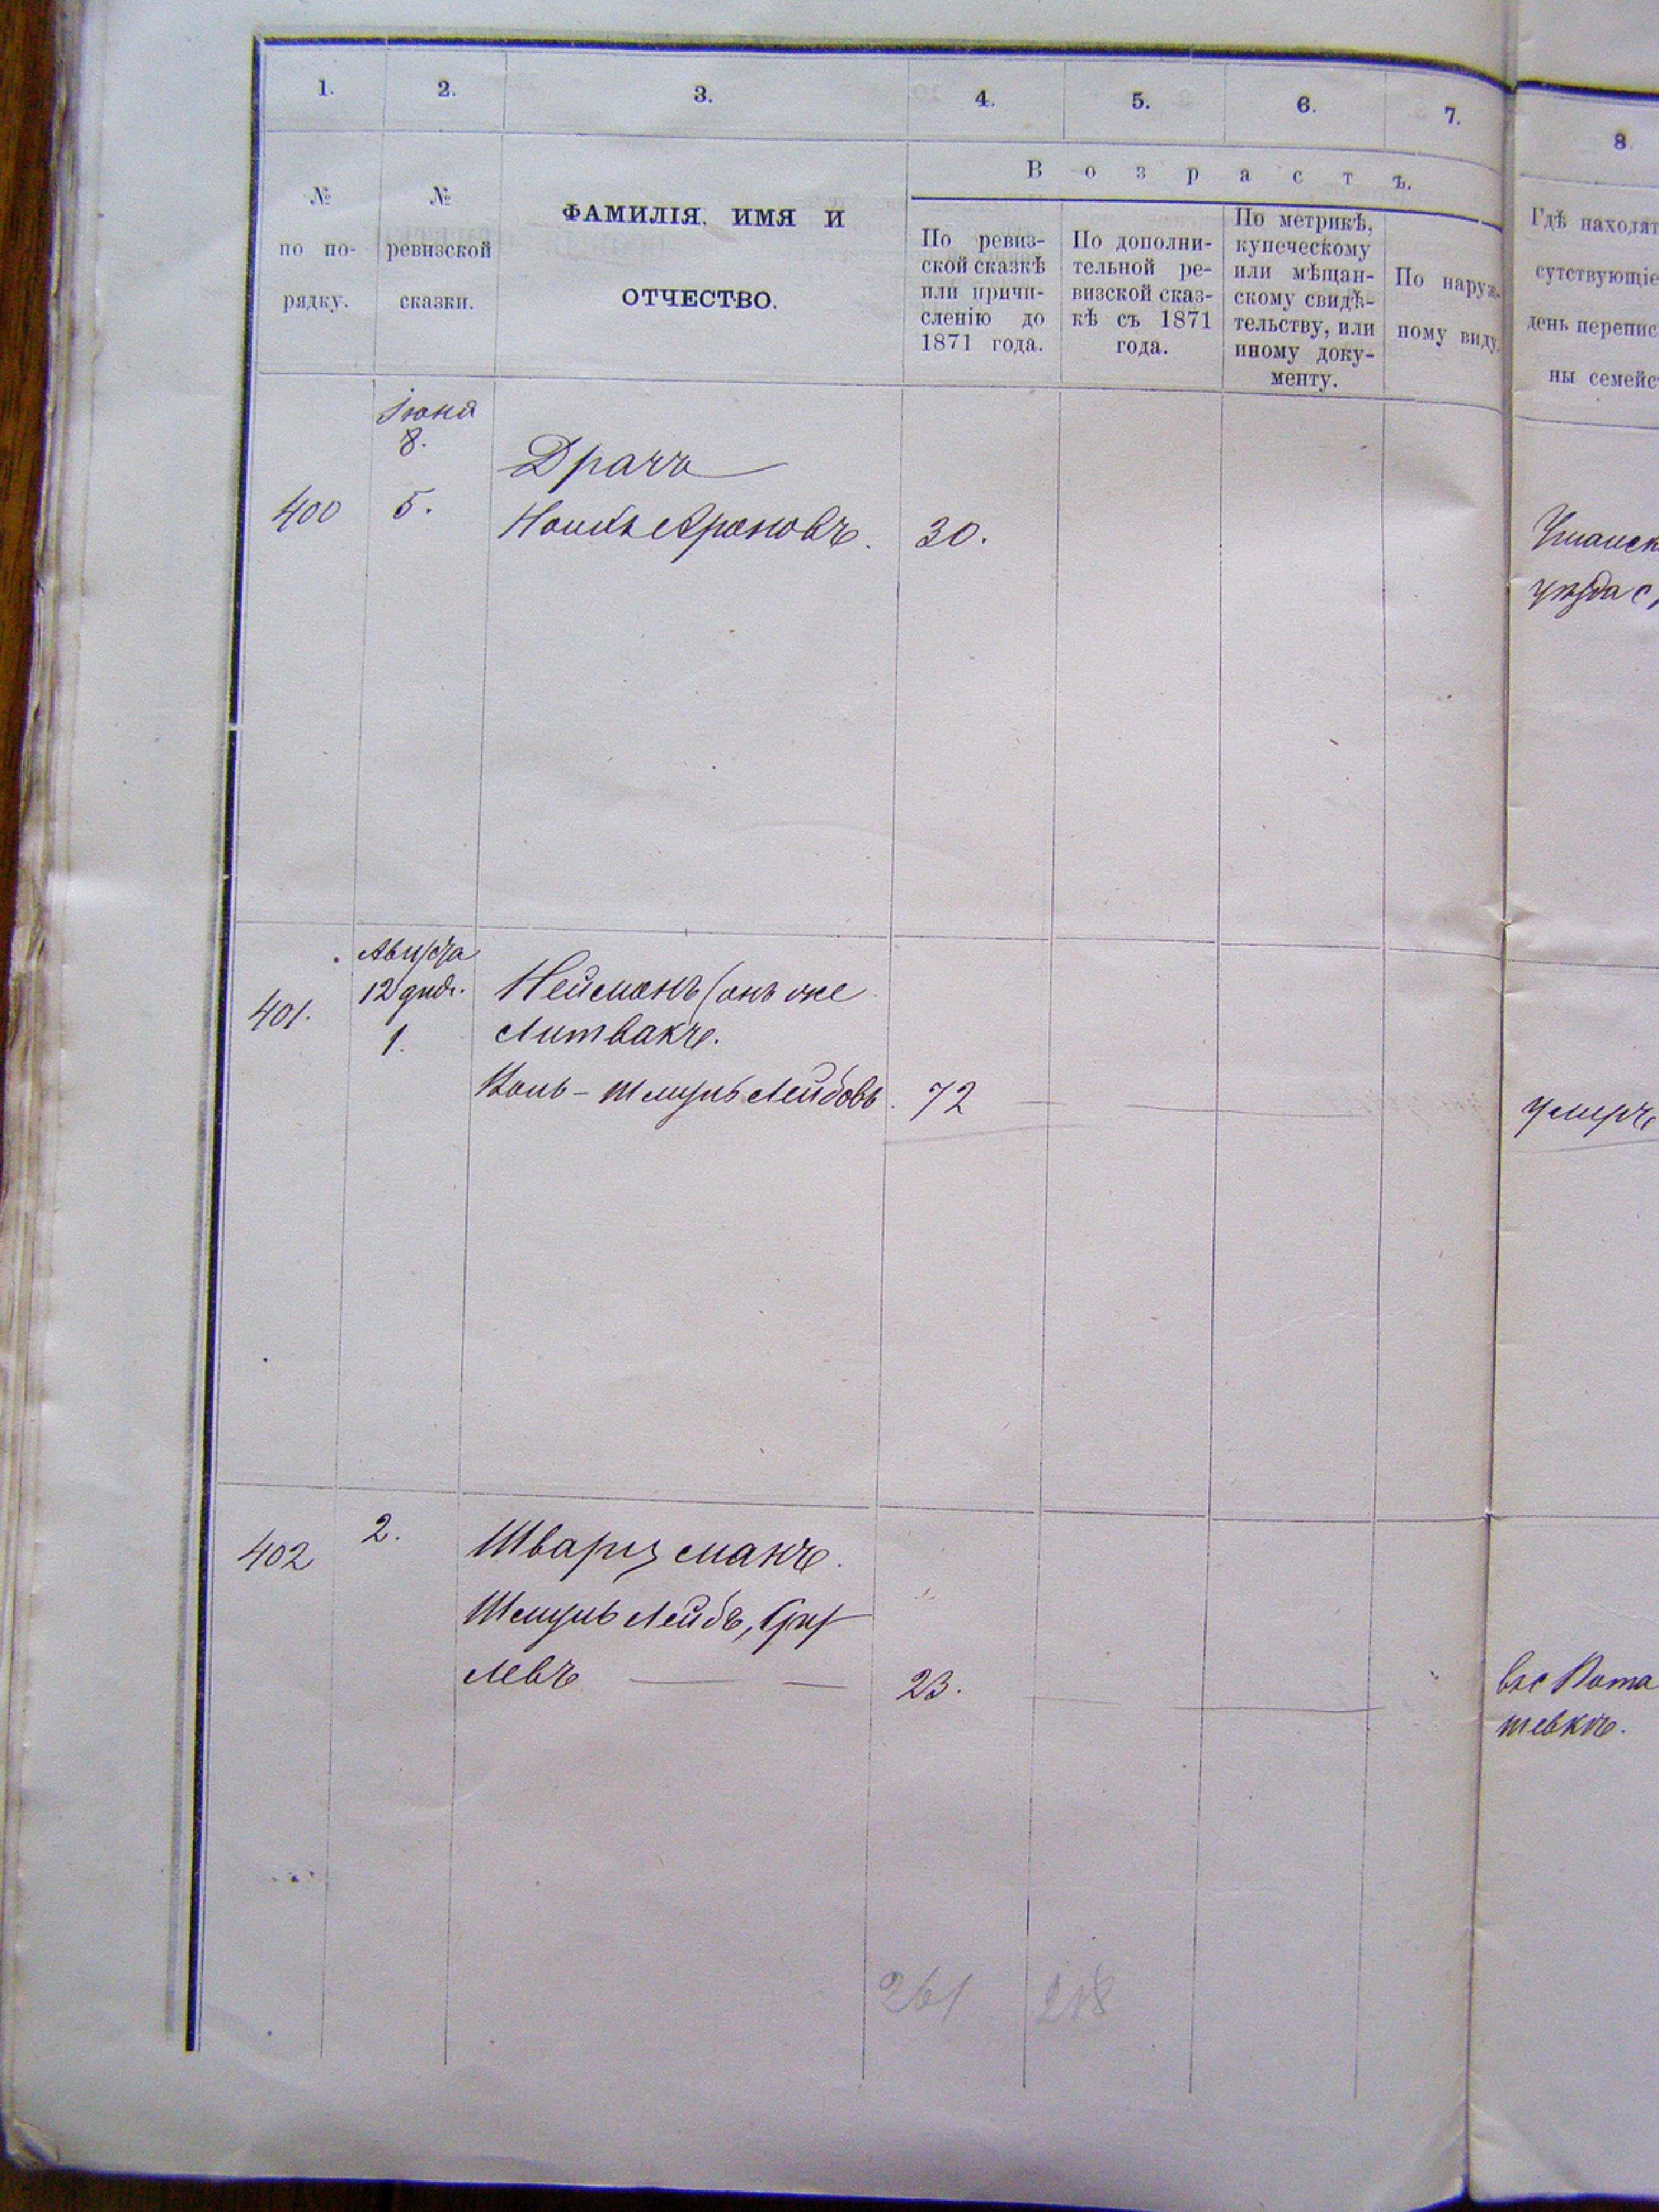 1. 2. 3. 4. 5. 6. 7. 8
№ по по-рядку.
№ ревизской сказки.
ФАМИЛІЯ, ИМЯ И
ОТЧЕСТВО.
Возрастъ.
По ревиз-
ской сказкѣ
или причи-
сленію до
1871 года.
По дополни-
тельной ре-
визской сказ-
кѣ съ 1871
года.
По метрикѣ,
купеческому
или мѣщан-
скому свидѣ-
тельству, или
иному доку-
менту.
По наруж-
ному виду.
Гдѣ находят
сутствующіе
день перепис
ны семейс
Іюня
8.
Драчъ
400 5. Ароновъ. 30.
Уманск
уѣзда с
Августа
12 дня. Нейманъ (онъ же
401. 1. Литвакъ.
Шмуль Лейбовъ. 72
умеръ
402 2. Шварцманъ.
Шмуль Лейбъ,
левъ 23.
въ с Пота
шевкѣ.
261 218